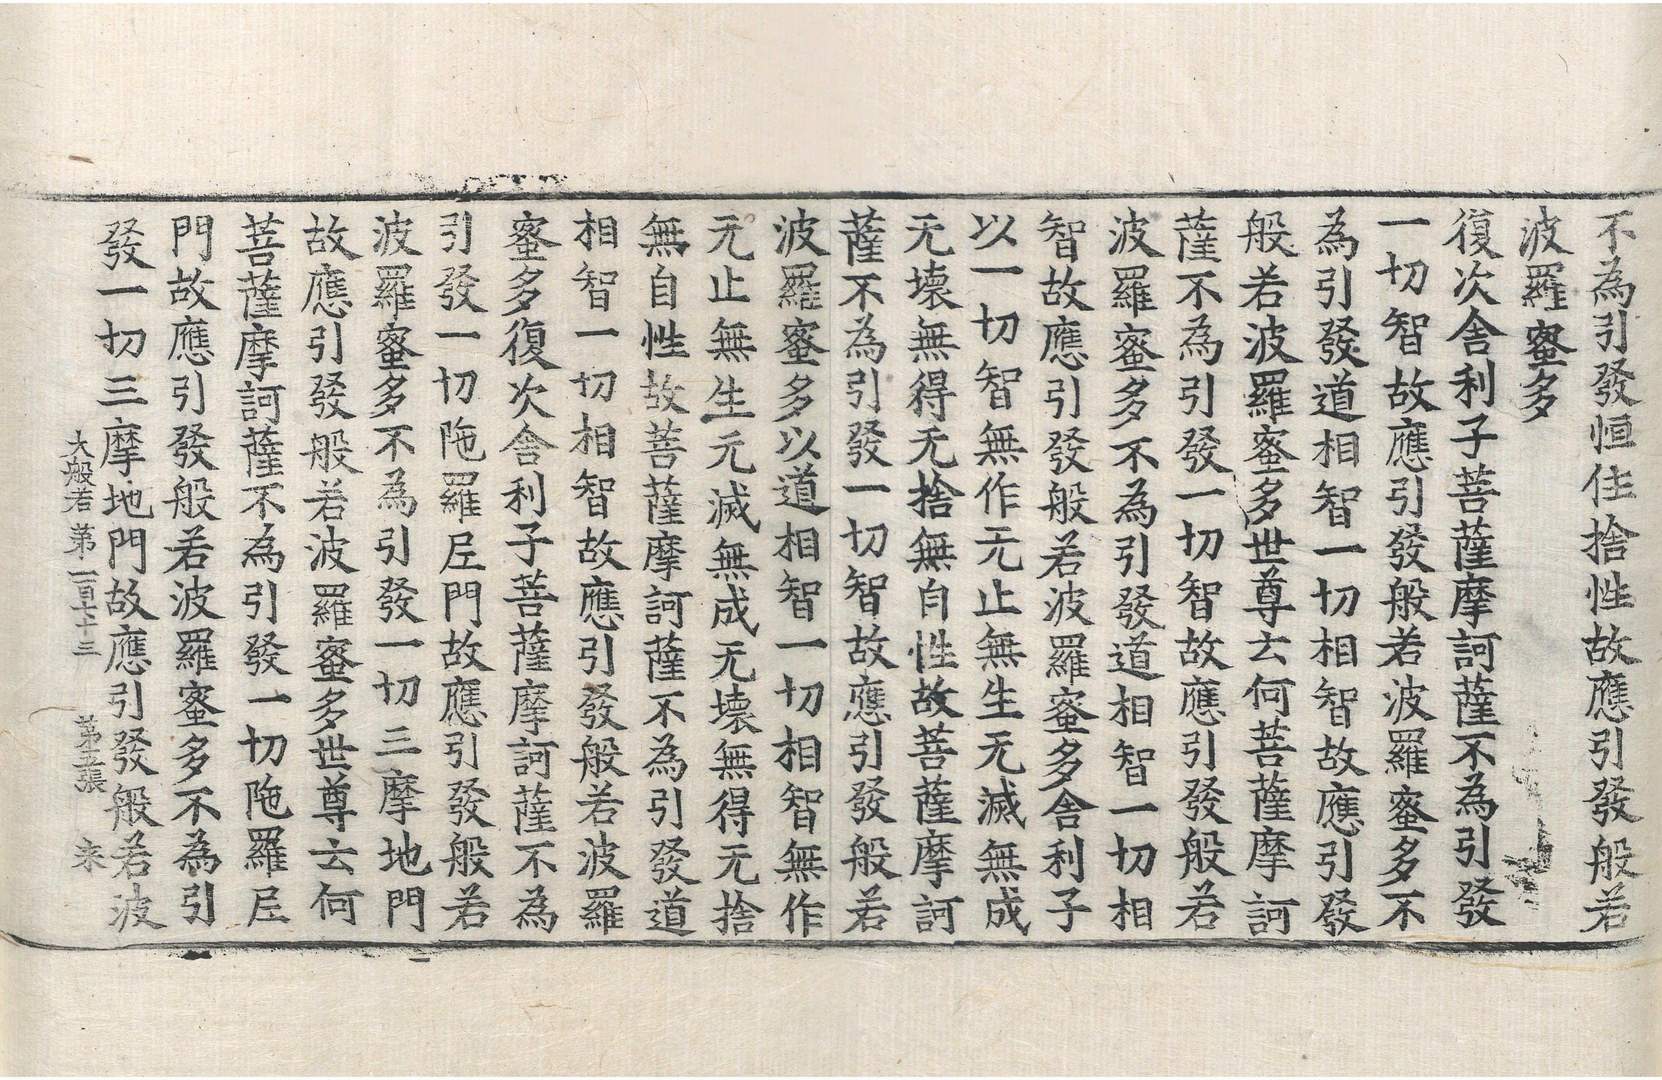 不為引發恒住捨性故應引發般若
波羅蜜多
復次舍利子菩薩摩訶薩不為引發
一切智故應引發般若波羅蜜多不
為引發道相智一切相智故應引發
般若波羅蜜多世尊云何菩薩摩訶
薩不為引發一切智故應引發般若
波羅蜜多不為引發道相智一切相
智故應引發般若波羅蜜多舍利子
以一切智無作无止無生无滅無成
无壞無得无捨無自性故菩薩摩訶
薩不為引發一切智故應引發般若
波羅蜜多以道相智一切相智無作
无止無生无滅無成无壞無得无捨
無自性故菩薩摩訶薩不為引發道
相智一切相智故應引發般若波羅
蜜多復次舍利子菩薩摩訶薩不為
引發一切陁羅尼門故應引發般若
波羅蜜多不為引發一切三摩地門
故應引發般若波羅蜜多世尊云何
菩薩摩訶薩不為引發一切陁羅尼
門故應引發般若波羅蜜多不為引
發一切三摩地門故應引發般若波
大般若第一百七十三 第五張 来